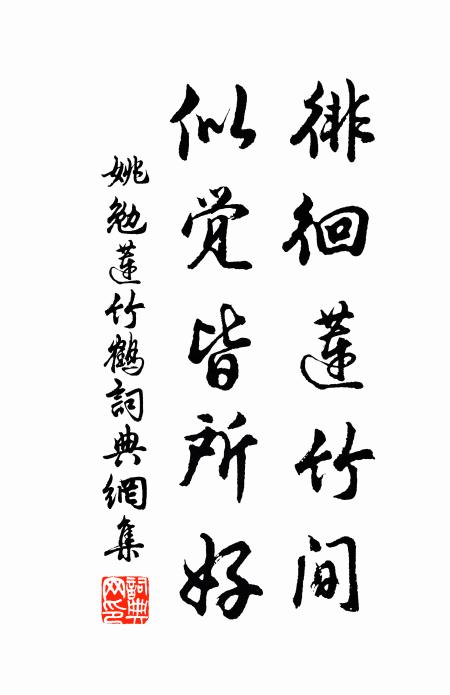 徘徊蓮竹间
似觉皆所好
姚勉蓮竹鶴詞典網集
詞典網印